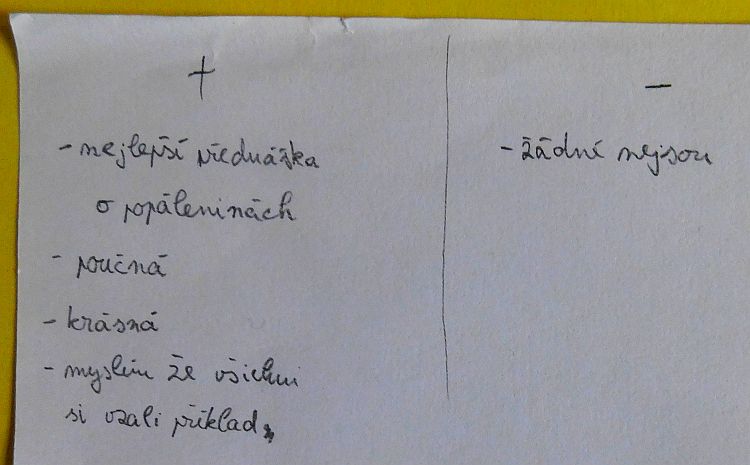 +
- nejlepší přednáška
o popáleninách
- poučná
- krásná
- myslím že všichni
si vzali příklad.
-
- žádné nejsou